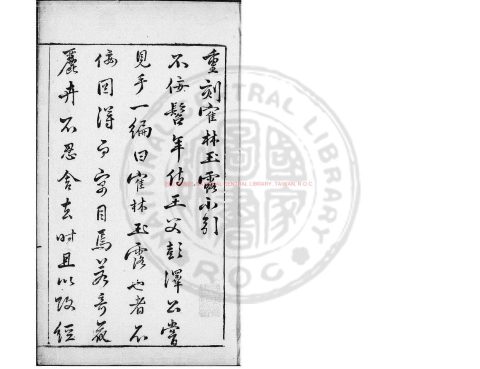 重刻寉林玉露小引
不佞髫年侍王父彭澤公嘗
見手一編曰寉林玉露也者不
佞因得而寓目焉若奇葩
麗卉不忍舍去时且以攻經
CENTRAL LIBRARY, TAIWAN, R.O.C